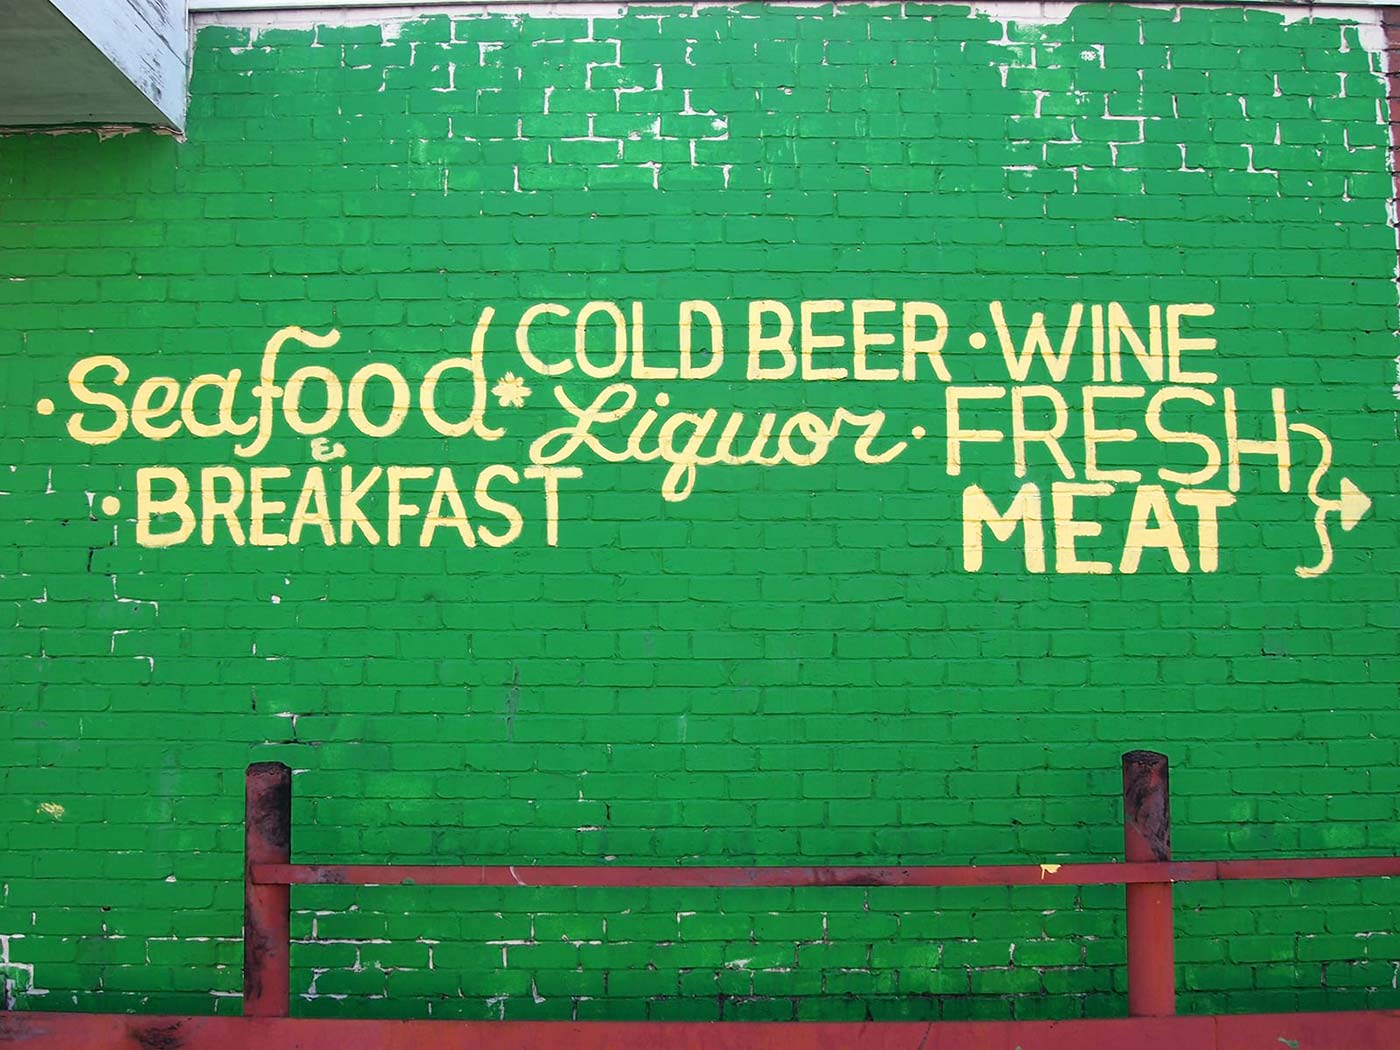 · Seafood *
&
· BREAKFAST
COLD BEER · WINE
Liquor · FRESH
MEAT